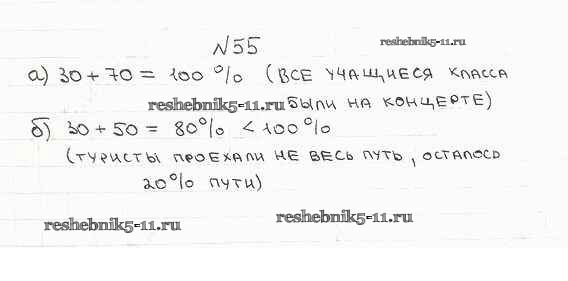 №55
reshebnik5-11.ru
а) 30 + 70 = 100 % (ВСЕ УЧАЩИЕСЯ КЛАССА
reshebnik5-11.ru БЫЛИ НА КОНЦЕРТЕ)
б) 30 + 50 = 80 % < 100 %
(ТУРИСТЫ ПРОЕХАЛИ НЕ ВЕСЬ ПУТЬ, ОСТАЛОСЬ
20 % ПУТИ)
reshebnik5-11.ru
reshebnik5-11.ru